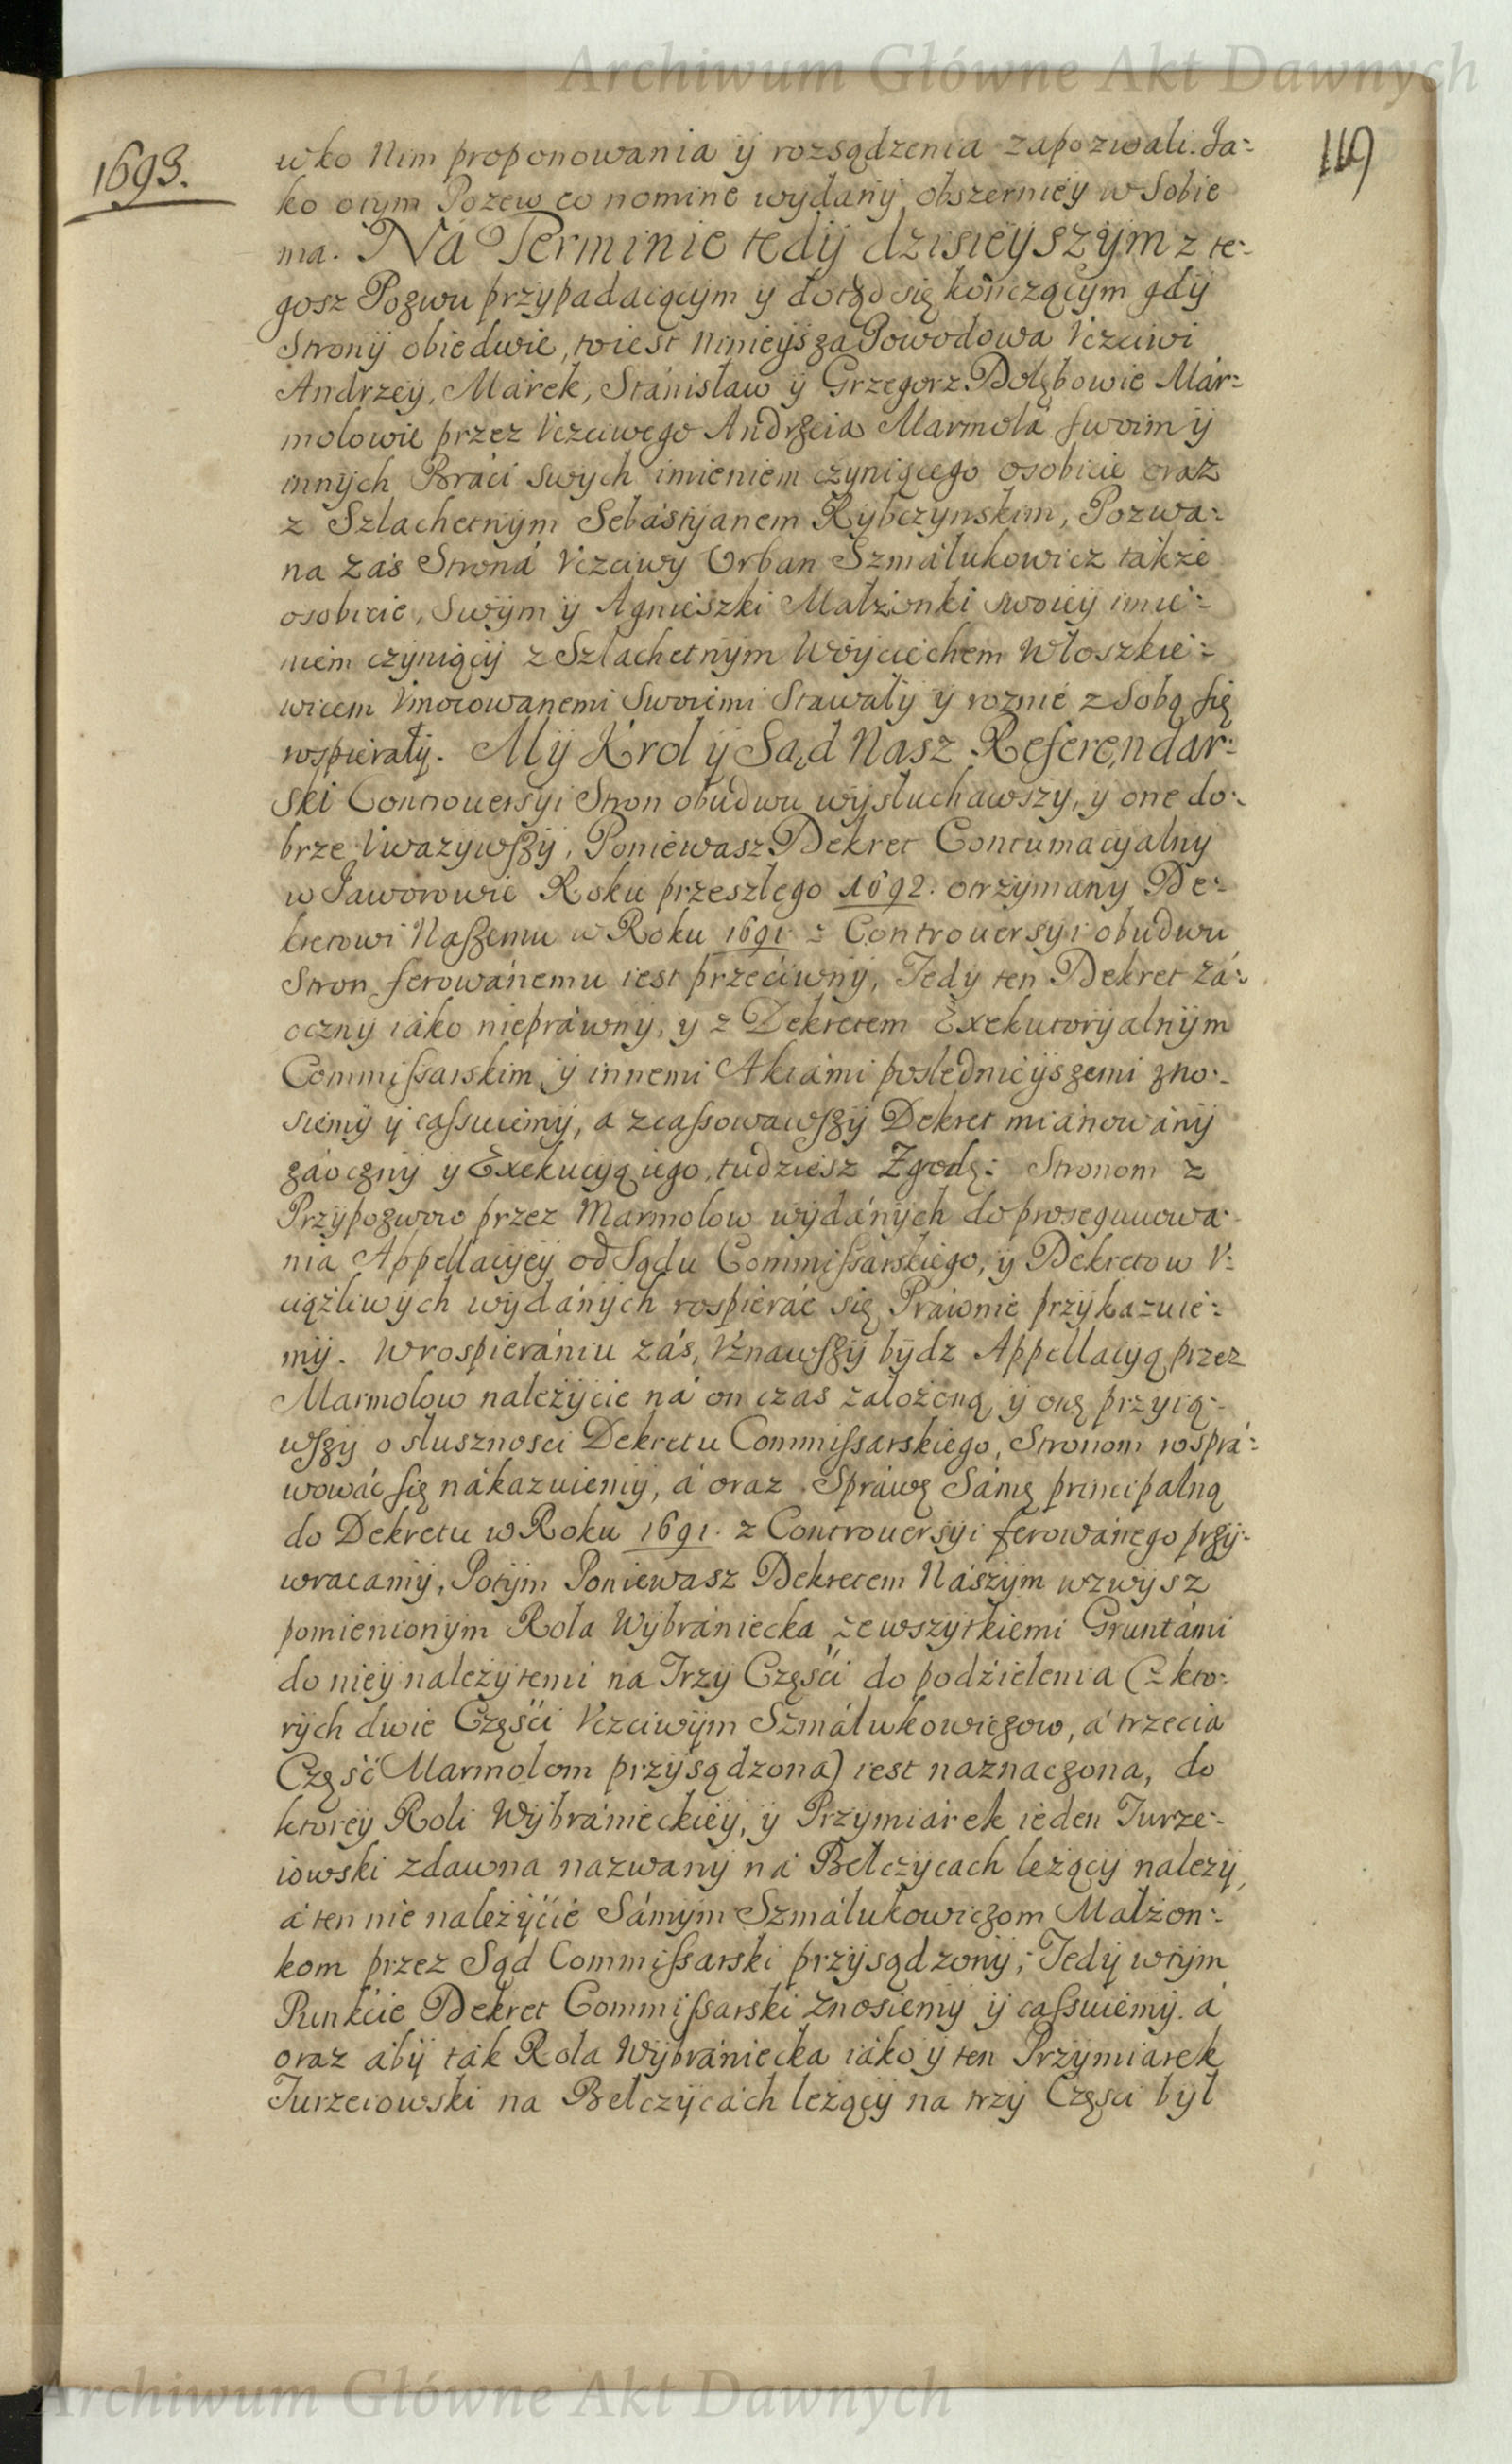 Archiwum Główne Akt Dawnych
1693.
119
wko Nim proponowania ÿ rozsądzenia zapozwali. Ja-
ko otym Pozew eo nomine wÿdanÿ obszerniey w Sobie
ma. Ná Terminie tedÿ dzisieÿszÿm z te-
gosz Pozwu przÿpadaiącym y dotąd się kończącÿm gdÿ
Stronÿ obiedwie, to iest ninieÿsza Powodowa Vczciwi
Andrzeÿ, Márek, Stánisław ÿ Grzegorz Dołębowie Már-
molowie przez Vczciwego Andrzeia Marmolá swoim ÿ
innÿch Bráci swÿch imieniem czÿniącego osobiście oraz
z Szlachetnÿm Sebástÿanem Rÿbczÿnskim, Pozwa-
na záś Stroná Vczciwÿ Urban Szmálukowicz także
osobiście, Swÿm ÿ Agnieszki Małżonki swoieÿ imie-
niem czÿniącÿ z Szlachetnÿm Woÿciechem Włoszkie-
wicem Vmocowanemi Swoiemi Stawałÿ ÿ roznie z Sobą się
rospierałÿ. Mÿ Krol ÿ Sąd Nasz Referendar-
ski Controuersÿi Stron obudwu wÿsłuchawszÿ, ÿ one do-
brze Vwazÿwszÿ, Poniewasz Dekret Contumacÿalnÿ
w Jaworowie Roku przeszłego 1692. otrzÿmanÿ De-
kretowi Naszemu w Roku 1691 z Controuersÿi obudwu
Stron ferowánemu iest przeciwnÿ, Tedÿ ten Dekret zá-
ocznÿ iáko nieprawnÿ, y z Dekretem Exekutorÿalnÿm
Commissarskim, ÿ innemi Aktámi poslednieÿszemi zno-
siemÿ ÿ cassuiemÿ, a zcassowawszÿ Dekret miánowánÿ
záocznÿ ÿ Exekucÿą iego, tudziesz Zgodę: Stronom z
Przÿpozwow przez Marmolow wÿdánÿch do prosequuowa-
nia Appellacÿeÿ od Sądu Commissarskiego, ÿ Dekretow V-
ciążliwÿch wÿdánÿch rospieráć się Prawnie przÿkazuie-
mÿ. W rospierániu záś, Vznawszÿ bÿdz Appellacÿą przez
Marmolow należÿcie ná on czas założoną, ÿ onę przyią-
wszÿ o słusznosci Dekretu Commissarskiego, Stronom rosprá-
wowáć się nákazuiemÿ, á oraz Spráwę Sámę principalną
do Dekretu w Roku 1691. z Controuersÿi ferowánego przÿ-
wracamÿ, Potÿm Poniewasz Dekretem Nászÿm wzwÿsz
pomienionÿm Rola Wÿbrániecka ze wszÿtkiemi Gruntámi
do nieÿ należÿtemi na Trzÿ Częśći do podzielenia (z kto-
rÿch dwie Częśći Vczciwÿm Szmálukowiczow, á trzecia
Część Marmolom przÿsądzona) iest naznaczona, do
ktoreÿ Roli Wÿbránieckieÿ, ÿ Przÿmiárek ieden Turze-
iowski zdawna nazwanÿ ná Bełczÿcach leżącÿ nalezÿ,
á ten nie należÿćie Sámÿm Szmálukowiczom Małżon-
kom przez Sąd Commissarski przÿsądzonÿ; Tedÿ w tÿm
Punkcie Dekret Commissarski znosiemÿ ÿ cassuiemÿ. á
oraz abÿ ták Rola Wÿbrániecka iáko ÿ ten Przÿmiarek
Turzeiowski na Bełczÿcách leżącÿ na trzÿ Częsci bÿł
Archiwum Główne Akt Dawnych